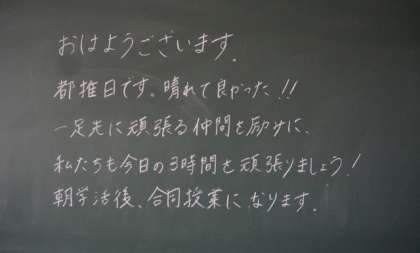 おはようございます.
都推日です。晴れて良かった!!
一足先に頑張る仲間を励みに、
私たちも今日の3時間を頑張りましょう!
朝学活後、合同授業になります.